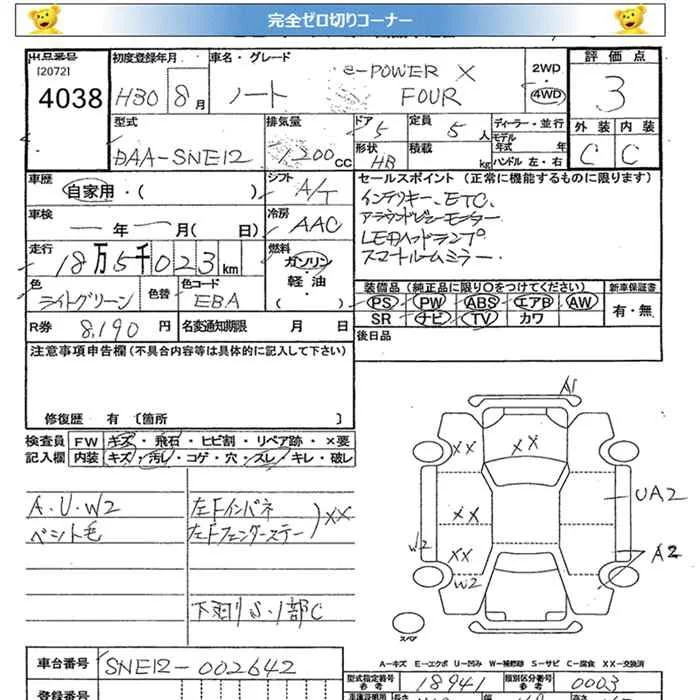 完全ゼロ切りコーナー
出品番号 初度登録年月 車名・グレード 2WD・4WD 評価点
[2072]
4038 H30 8月 ノート e-POWER X FOUR 3
型式 排気量 ドア 5 定員 5人 ディーラー・並行 外装 内装
モデル年式 年式
DAA-SNE12 1,200cc 形状 HB 積載 kg ハンドル 左・右 C C
車歴 自家用・( ) シフト A/T セールスポイント(正常に機能するものに限ります)
インテリキー、ETC、
車検 ー年ー月( 日) 冷房 AAC アラウンドビューモニター
LEDヘッドランプ
走行 18万5千023km 燃料 ガソリン・軽油・( ) スマートルームミラー、
色 ライトグリーン 色替 色コード EBA 装備品(純正品に限り○をつけてください) 新車保証書
PS PW ABS エアB AW 有・無
R券 8,190円 名変通知期限 月 日 SR ナビ TV カワ
注意事項申告欄(不具合内容等は具体的に記入して下さい) 後日品
修復歴 有〔箇所 〕
検査員 FW キズ・飛石・ヒビ割・リペア跡・×要
記入欄 内装 キズ・汚レ・コゲ・穴・スレ・キレ・破レ
A.U.W2 左Fインパネ
ペント毛 左Fフェンダーステー )XX
下廻りS・1部C
A1
XX XX
UA2
XX
W2 XX A2
W2
スペア
A-キズ E-エクボ U-凹み W-補修跡 S-サビ C-腐食 XX-交換済
車台番号 SNE12-002642 型式指定番号 参考 18941 類別区分番号 参考 0003
登録番号